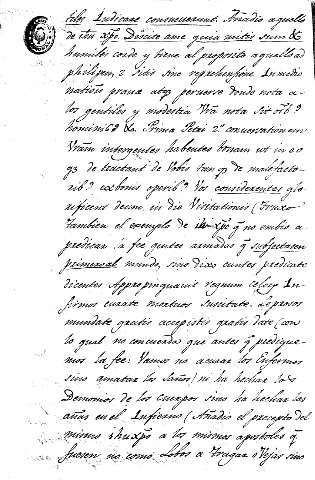 tiles Iudicare consueuerunt. Añadio aquello
de ihu xpo. Discite a me quia mitis sum &
humiles corde y tiene al proposito aquello ad
philipen, 2 sitis sine reprehensione In medio
nationis praua atq peruerse donde nota a
los gentiles y modestia Vra nota sit oīb9
hominib9 &a. Prima Petri 2ª conversationem
Vram inter gentes habentes bonam ut in eo
q3 detractant de Vobis tanq3 de malefacto-
rib9 ex bonis operib9 Vos considerantes glo
rificent deum in die Visitationis (Truxo
tambien el exemplo de xpo q no embio a
predicar la fee gentes armadas q subjectasen
primero al mundo, sino dixo euntes predicate
dicentes Appropinquauit regnum celoru In-
firmos curate mortuos suscitate Leprosos
mundate gratis accepistis gratis date (con
lo qual no concuerda que antes q predique-
mos la fee: Vamos no acurar los Enfermos
sino amatar los Sanos) ni ha hechar los
Demonios de los cuerpos sino ha hechar las
añas en el Infierno (Añadio el precepto del
mismo ihuxpo a los mismos apostoles q
fuesen no como Lobos a tragar oVejas sino